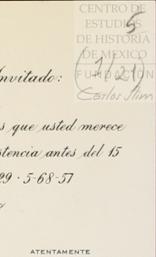 CENTRO DE
ESTUDIOS
DE HISTORIA
DE MÉXICO
FUNDACIÓN
Carlos Slim
5
(7/21)
Invitado:
s que usted merece
stencia antes del 15
29 · 5-68-57
ATENTAMENTE